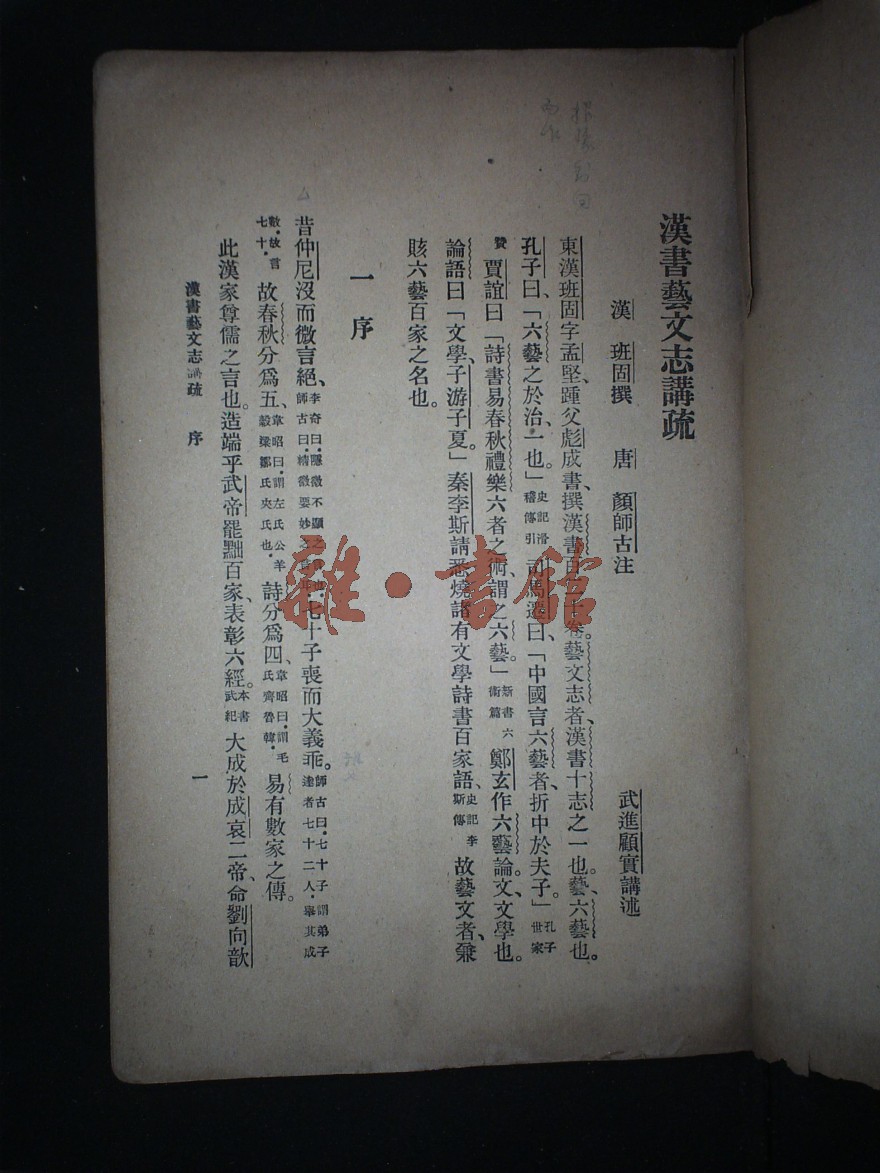 漢書藝文志講疏
漢　班固撰　唐　顏師古注
武進顧實講述
東漢班固字孟堅、踵父彪成書、撰漢書百卷。藝文志者、漢書十志之一也。藝、六藝也。
孔子曰、「六藝之於治、一也。」史記滑稽傳引司馬遷曰、「中國言六藝者、折中於夫子。」孔子世家
贊賈誼曰「詩書易春秋禮樂六者之術、謂之六藝。」新書六術篇鄭玄作六藝論。文、文學也。
論語曰「文學、子游子夏。」秦李斯請悉燒諸有文學詩書百家語、史記李斯傳故藝文者、兼
賅六藝百家之名也。
一　序
昔仲尼沒而微言絕、李奇曰、隱微不顯之言也、師古曰、精微要妙之言耳、七十子喪而大義乖。師古曰、七十子謂弟子達者七十二人、舉其成
數、故言七十。故春秋分爲五、韋昭曰、謂左氏公羊穀梁鄒氏夾氏也、詩分爲四、韋昭曰、謂毛氏齊魯韓、易有數家之傳。
此漢家尊儒之言也。造端乎武帝罷黜百家、表彰六經。本書武紀大成於成哀二帝、命劉向歆
漢書藝文志講疏　序
一
雜·書館